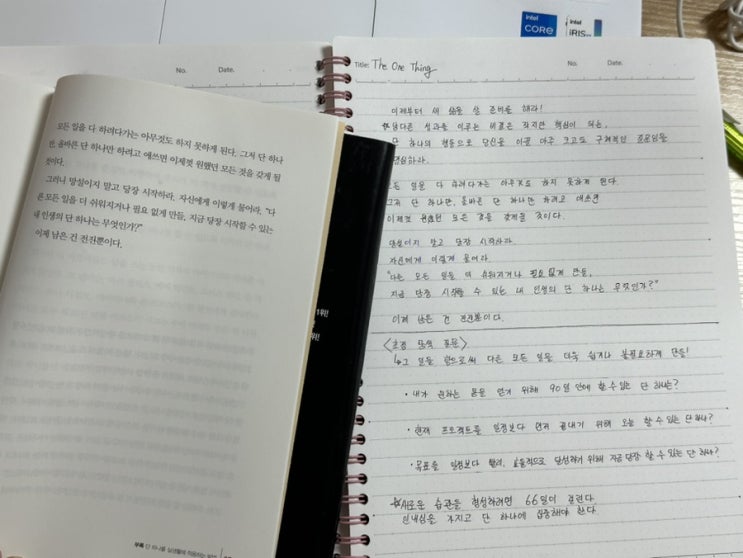 모든 일을 다 하려다가는 아무것도 하지 못하게 된다. 그저 단 하나
만, 올바른 단 하나만 하려고 애쓰면 이제껏 원했던 모든 것을 갖게 될
것이다.
그러니 망설이지 말고 당장 시작하라. 자신에게 이렇게 물어라. "다
른 모든 일을 더 쉬워지거나 필요 없게 만들, 지금 당장 시작할 수 있는
내 인생의 단 하나는 무엇인가?"
이제 남은 건 전진뿐이다.
부록 단 하나를 실생활에 적용하는
위!
위!
intel
CORE
intel
iRIS
No. Date.
Title: The One Thing No. Date.
이제부터 새 삶을 살 준비를 해라!
남다른 성과를 이루는 비결은 작지만 핵심이 되는,
단 하나의 행동으로 당신을 이끌 아주 크고도 구체적인 질문임을
명심하라.
모든 일을 다 하려다가는 아무것도 하지 못하게 된다.
그저 단 하나만, 올바른 단 하나만 하려고 애쓰면
이제껏 원했던 모든 것을 갖게될 것이다.
망설이지 말고 당장 시작하라.
자신에게 이렇게 물어라.
"다른 모든 일을 더 쉬워지거나 필요 없게 만들,
지금 당장 시작할 수 있는 내 인생의 단 하나는 무엇인가?"
이제 남은 건 전진뿐이다.
<초점 탐색 질문>
↳그 일을 함으로써 다른 모든 일을 더욱 쉽거나 불필요하게 만들!
• 내가 원하는 몸을 얻기 위해 90일 안에 할 수 있는 단 하나는?
• 현재 프로젝트를 일정보다 먼저 끝내기 위해 오늘 할 수 있는 단 하나?
• 목표를 일정보다 빨리, 효율적으로 달성하기 위해 지금 당장 할 수 있는 단 하나?
☆새로운 습관을 형성하려면 66일이 걸린다
인내심을 가지고 단 하나에 집중해야 한다.